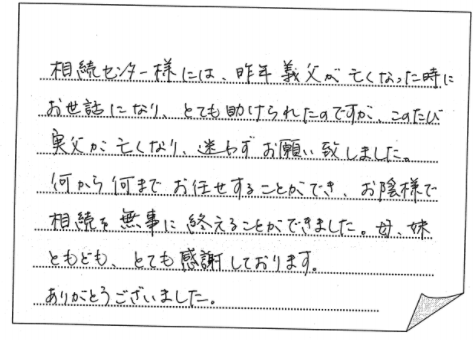 相続センター様には、昨年義父が亡くなった時に
お世話になり、とても助けられたのですが、このたび
実父が亡くなり、迷わずお願い致しました。
何から何までお任せすることができ、お陰様で
相続を無事に終えることができました。母、妹
ともども、とても感謝しております。
ありがとうございました。